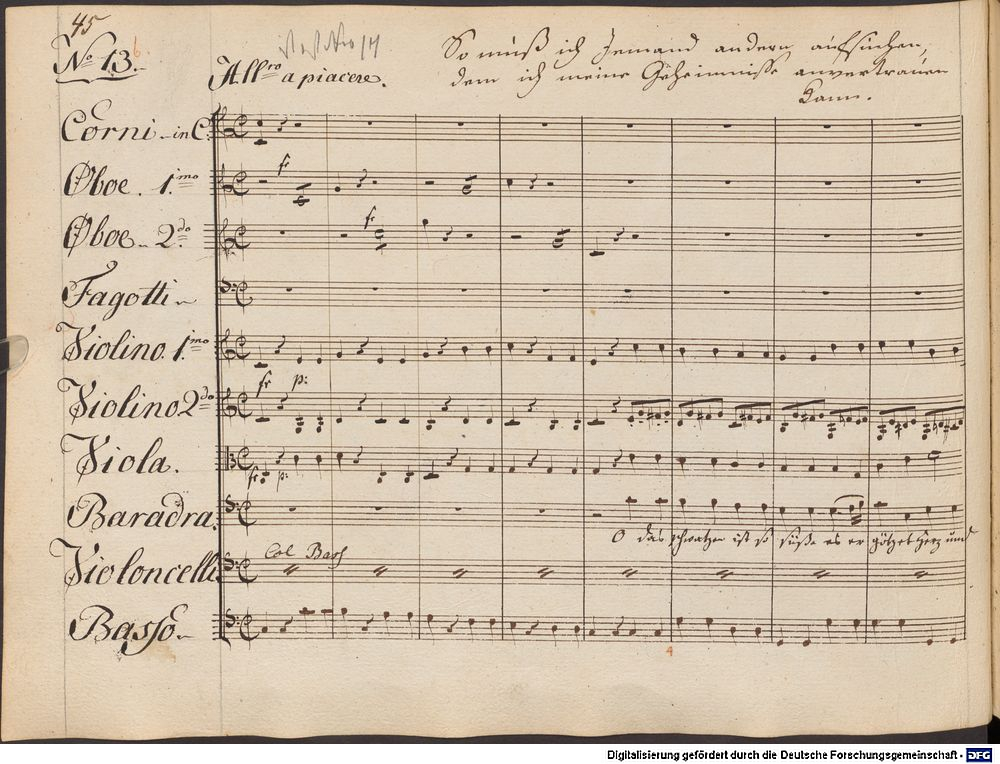 45
No 13.
6
All.ro a piacere.
So muß ich Jemand andern aufsuchen,
dem ich meine Geheimnisse anvertrauen
kann.
Corni in C.
Oboe. 1.mo
fr
Oboe 2.do
fr
Fagotti
Violino. 1.mo
Violino 2.do
fr p:
Viola.
fr p:
Baradra.
O das schwatzen ist so süße es er götzet Herz und
Violoncelli
Col Bass
Basso
4
Digitalisierung gefördert durch die Deutsche Forschungsgemeinschaft - DFG